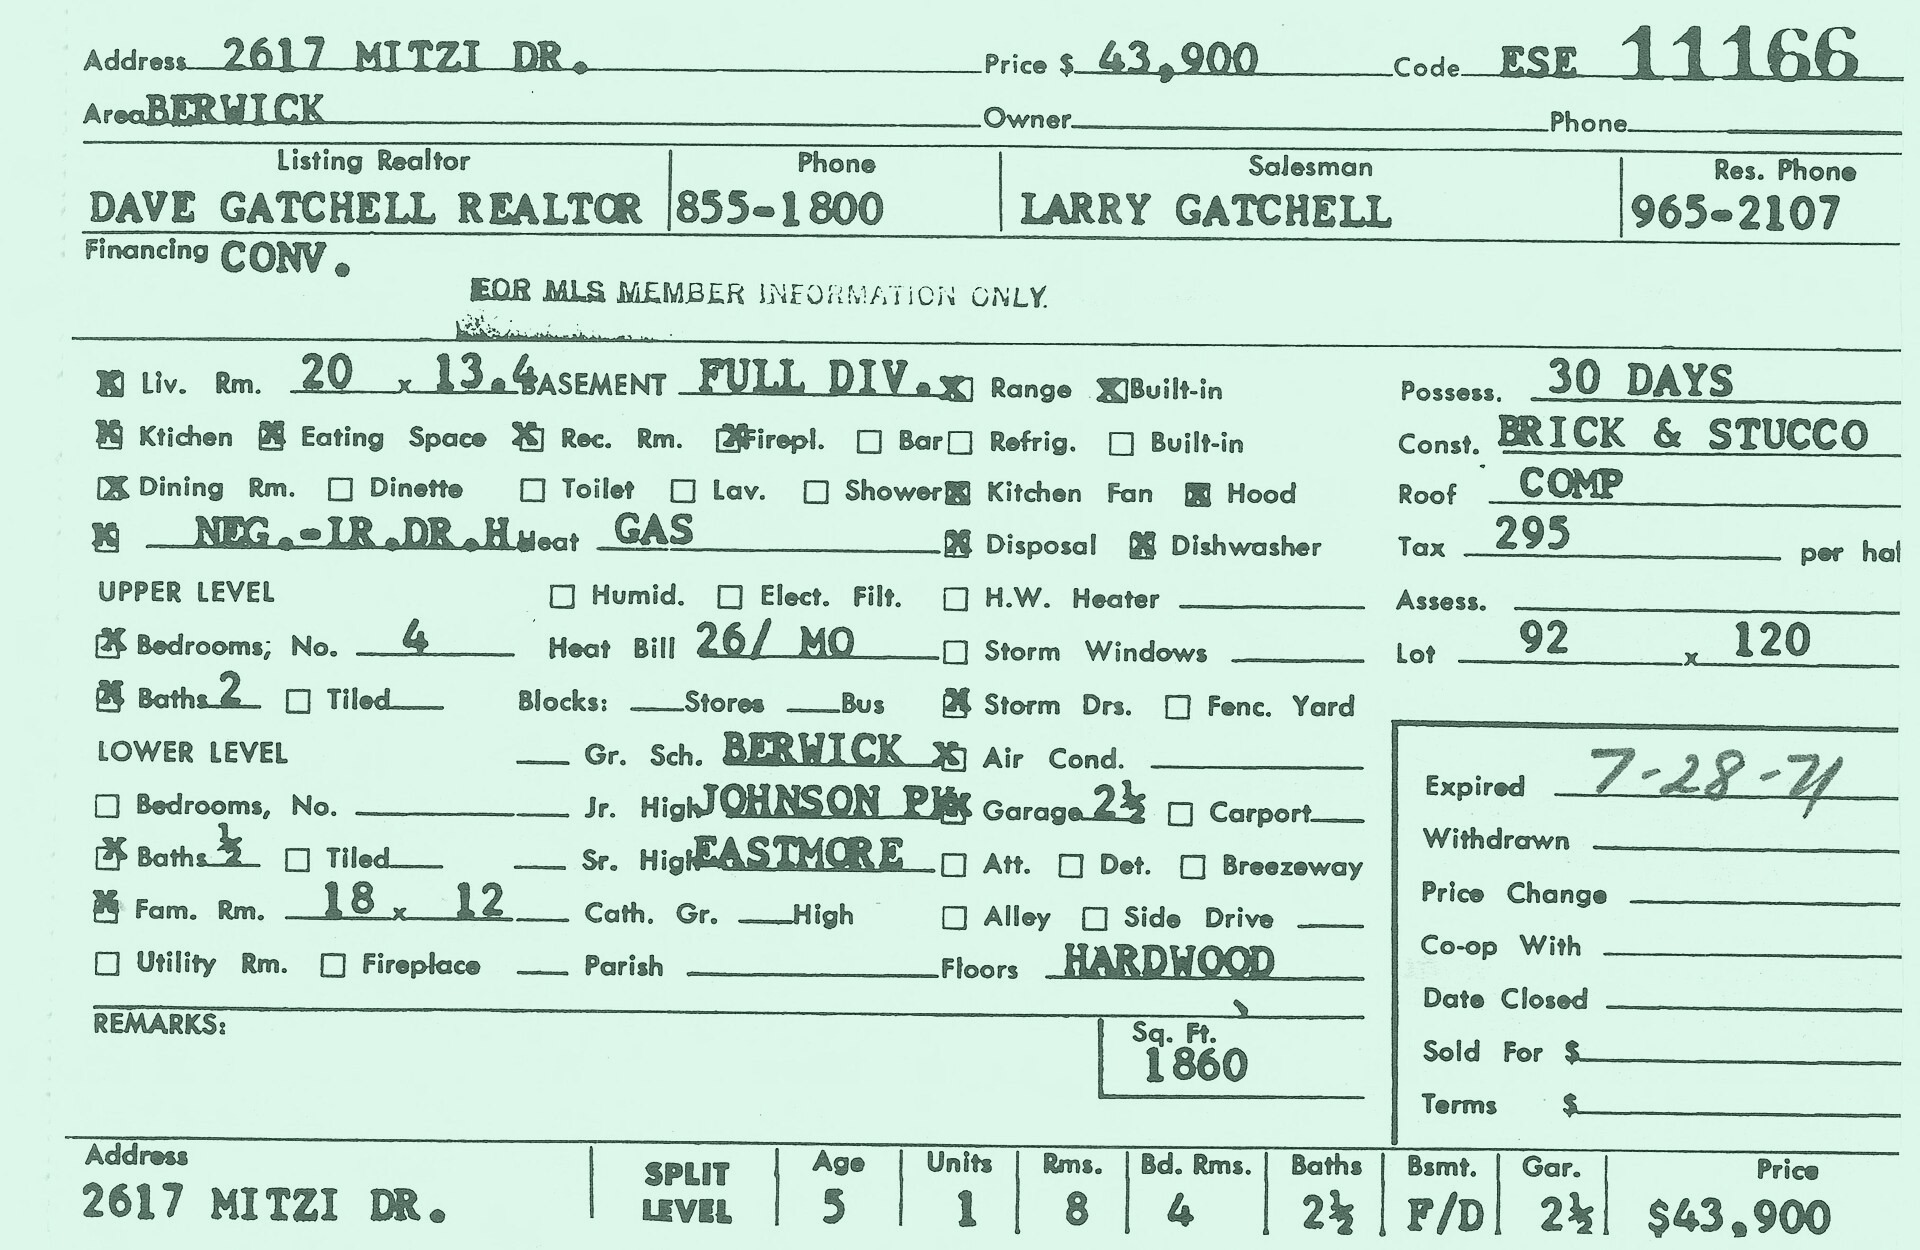 Address 2617 MITZI DR. Price $ 43,900 Code ESE 11166
Area BERWICK Owner Phone
Listing Realtor Phone Salesman Res. Phone
DAVE GATCHELL REALTOR 855-1800 LARRY GATCHELL 965-2107
Financing CONV.
FOR MLS MEMBER INFORMATION ONLY.
X Liv. Rm. 20 x 13.4 BASEMENT FULL DIV. X Range X Built-in Possess. 30 DAYS
X Ktichen X Eating Space X Rec. Rm. X Firepl. Bar Refrig. Built-in Const. BRICK & STUCCO
X Dining Rm. Dinette Toilet Lav. Shower X Kitchen Fan X Hood Roof COMP
X NEG.-LR.DR.H. Heat GAS X Disposal X Dishwasher Tax 295 per hal
UPPER LEVEL Humid. Elect. Filt. H.W. Heater Assess.
X Bedrooms; No. 4 Heat Bill 26/ MO Storm Windows Lot 92 x 120
X Baths 2 Tiled Blocks: Stores Bus X Storm Drs. Fenc. Yard
LOWER LEVEL Gr. Sch. BERWICK X Air Cond. Expired 7-28-71
Bedrooms, No. Jr. High JOHNSON PK X Garage 2½ Carport
Withdrawn
X Baths ½ Tiled Sr. High EASTMORE Att. Det. Breezeway
Price Change
X Fam. Rm. 18 x 12 Cath. Gr. High Alley Side Drive
Co-op With
Utility Rm. Fireplace Parish Floors HARDWOOD
Date Closed
REMARKS: Sq. Ft.
1860
Sold For $
Terms $
Address SPLIT LEVEL Age Units Rms. Bd. Rms. Baths Bsmt. Gar. Price
2617 MITZI DR. 5 1 8 4 2½ F/D 2½ $43,900